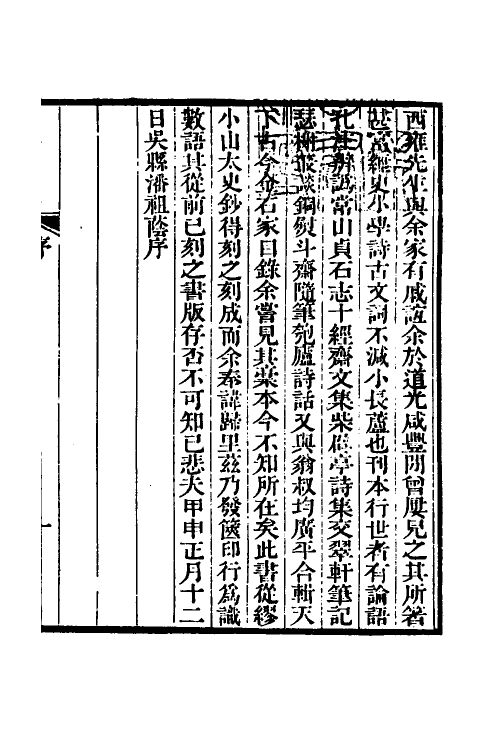 西雍先生與余家有戚誼余於道光咸豐閒曾屢見之其所著
甚富經史小學詩古文詞不減小長蘆也刊本行世者有論語
孔注辨譌常山貞石志十經齋文集柴辟亭詩集交翠軒筆記
瑟榭叢談銅熨斗齋隨筆匏廬詩話又與翁叔均廣平合輯天
下古今金石家目錄余嘗見其稾本今不知所在矣此書從繆
小山太史鈔得刻之刻成而余奉諱歸里茲乃發篋印行爲識
數語其從前已刻之書版存否不可知已悲夫甲申正月十二
日吳縣潘祖蔭序
序
一